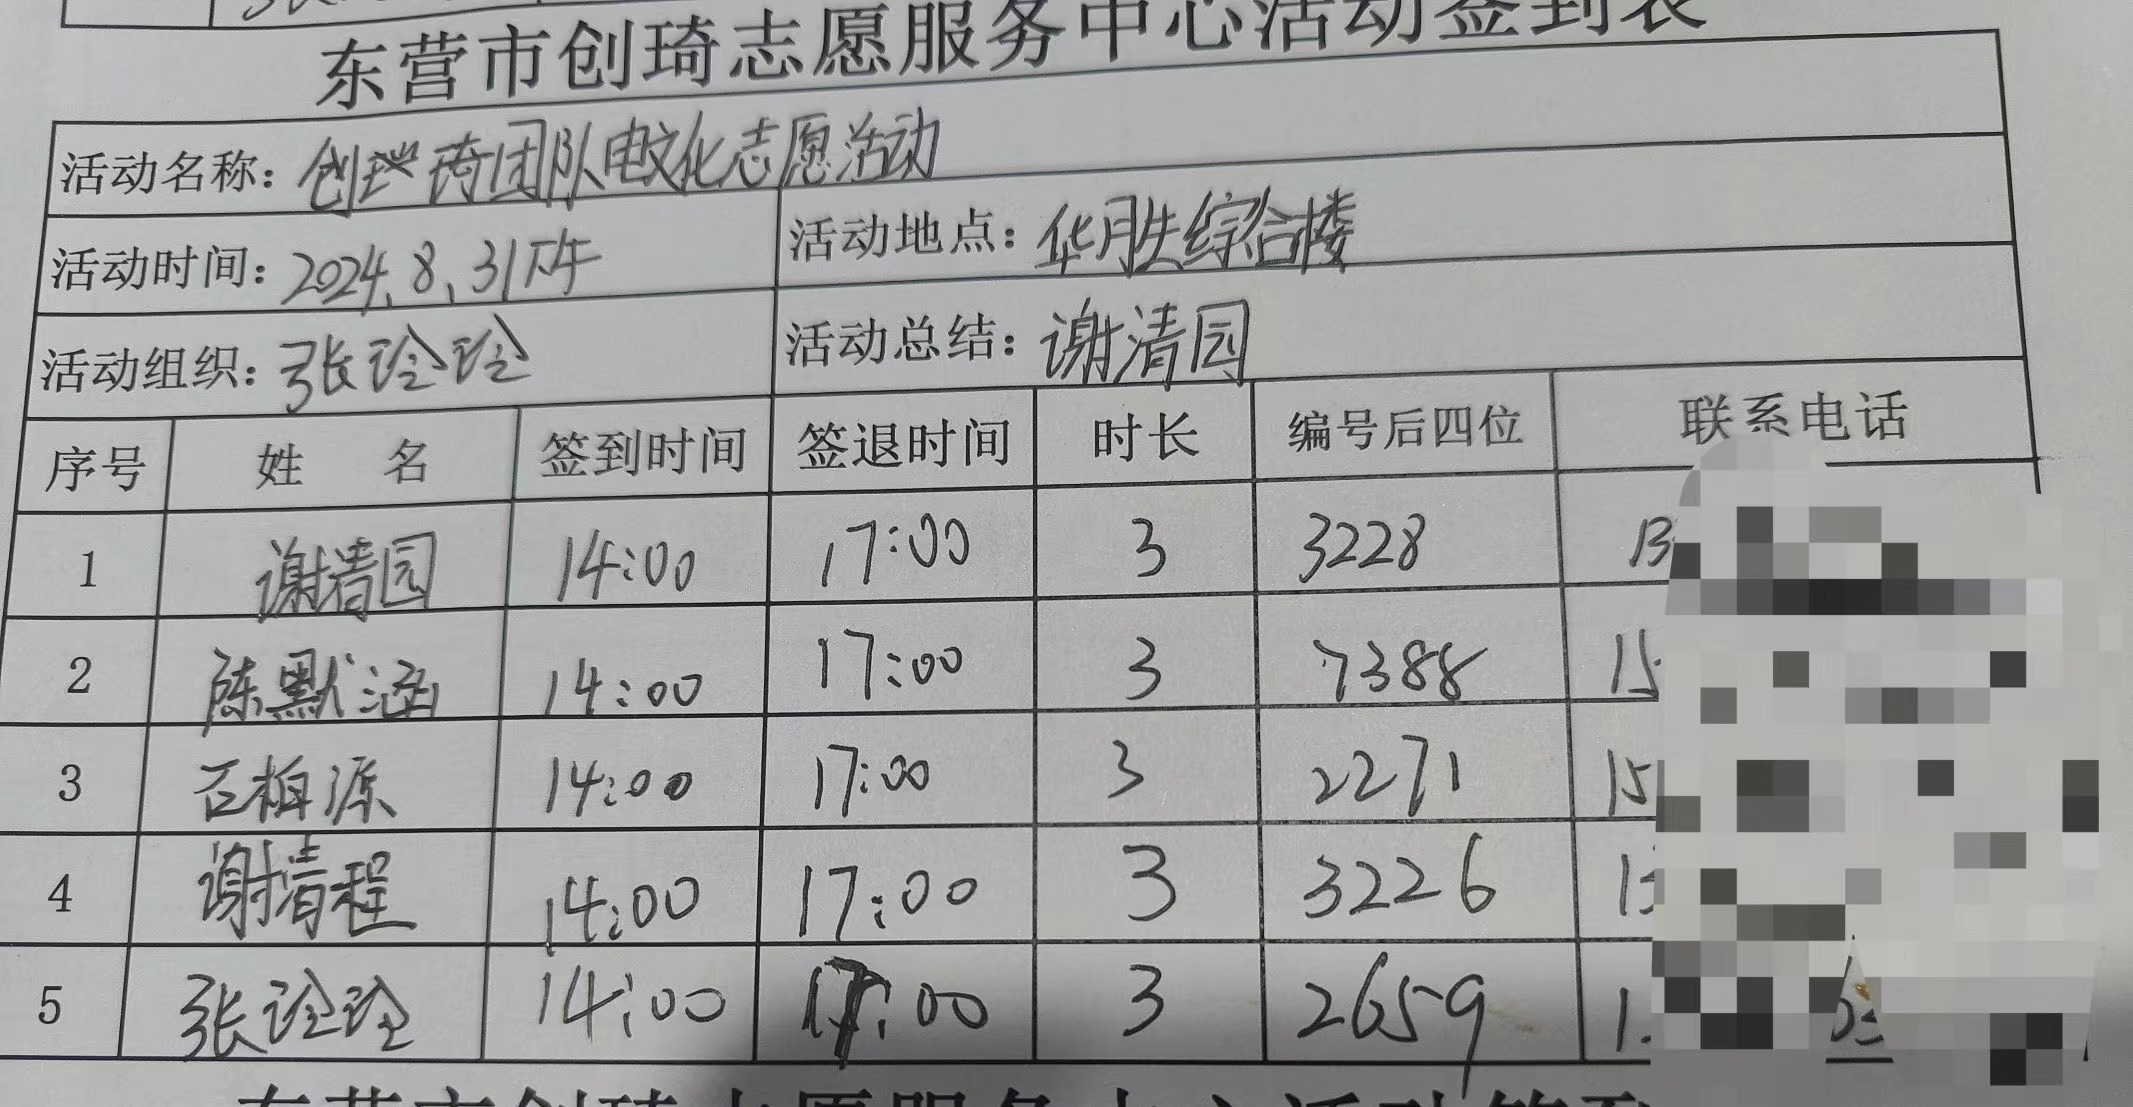 东营市创琦志愿服务中心活动签到表
活动名称：创琦团队电文化志愿活动
活动时间：2024.8.31下午 活动地点：华胜综合楼
活动组织：张诠诠 活动总结：谢清园
序号 姓 名 签到时间 签退时间 时长 编号后四位 联系电话
1 谢清园 14:00 17:00 3 3228 13
2 陈默涵 14:00 17:00 3 7388 15
3 石柏源 14:00 17:00 3 2271 15
4 谢清程 14:00 17:00 3 3226 15
5 张诠诠 14:00 17:00 3 2659 1
东营市创琦志愿服务中心活动签到